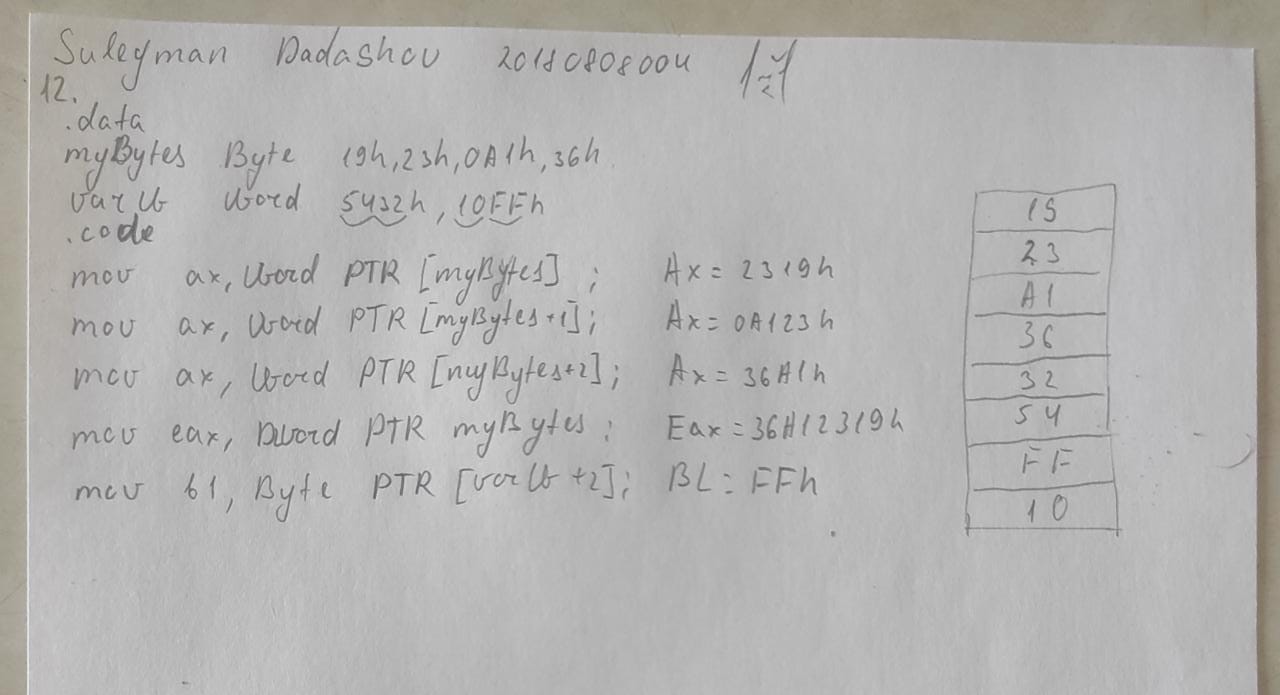 Suleyman Dadashov 20180808004
12.
.data
myBytes Byte 19h,23h,0A1h,36h
varW Word 5432h, 10FFh
.code
mov ax, Word PTR [myBytes] ; Ax = 2319h
mov ax, Word PTR [myBytes+1]; Ax = 0A123h
mov ax, Word PTR [myBytes+2]; Ax = 36A1h
mov eax, DWord PTR myBytes ; Eax = 36A12319h
mov bl, Byte PTR [varW +2]; BL = FFh
19
23
A1
36
32
54
FF
10